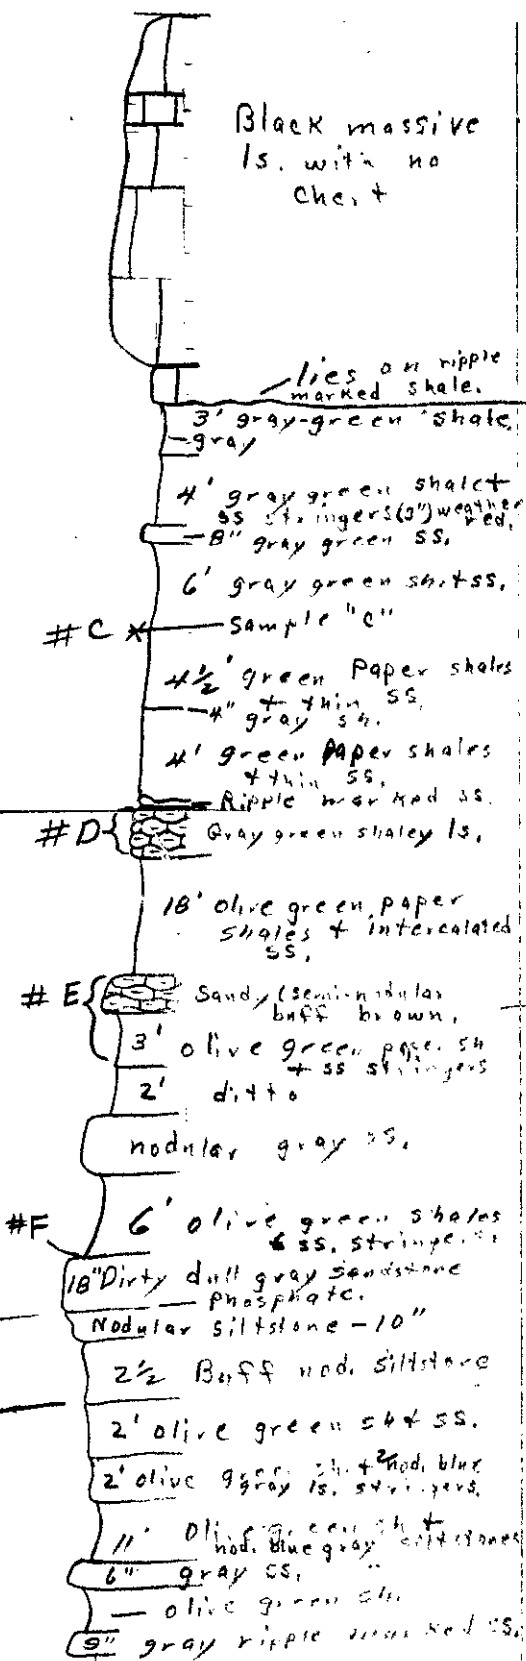 Black massive
ls. with no
chert
lies on ripple
marked shale.
3' gray-green shale
gray
4' gray green shale +
ss stringers (3") weather
red.
8" gray green ss.
6' gray green sh. + ss.
#C Sample "C"
4½' green Paper shales
+ thin ss.
4" gray sh.
4' green Paper shales
+ thin ss.
Ripple marked ss.
#D Gray green shaley ls.
18' olive green paper
shales + intercalated
ss.
#E Sandy (semi-nodular
buff brown.
3' olive green paper sh
+ ss stringers
2' ditto
nodular gray ss.
6' olive green shales
#F & ss. stringers
18" Dirty dull gray sandstone
phosphate.
Nodular siltstone - 10"
2½ Buff nod. siltstone
2' olive green sh + ss.
2' olive green sh. + nod. blue
gray ls. stringers.
11' Olive green sh +
nod. blue gray siltstones
6" gray ss.
olive green sh.
9" gray ripple marked ss.